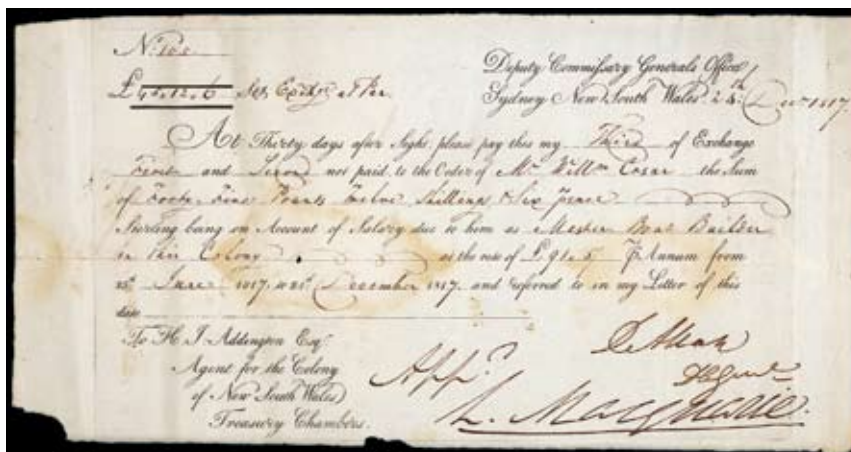 £45.12.6
Deputy Commissary Generals Office
Sydney New South Wales 24th Decr 1817.
At Thirty days after Sight, please pay this my Third of Exchange
First and Second not paid to the Order of Mr Willm Cosar the Sum
of Forty Five Pounds Twelve Shillings & Six Pence
Sterling being on Account of Salary due to him as Master Boat Builder
in this Colony at the rate of £91.5 Pr Annum from
25th June 1817 to 24th December 1817. and referred to in my Letter of this
date
To H. J. Addington Esqr.
Agent for the Colony
of New South Wales
Treasury Chambers.
Appd.
L. Macquarie.